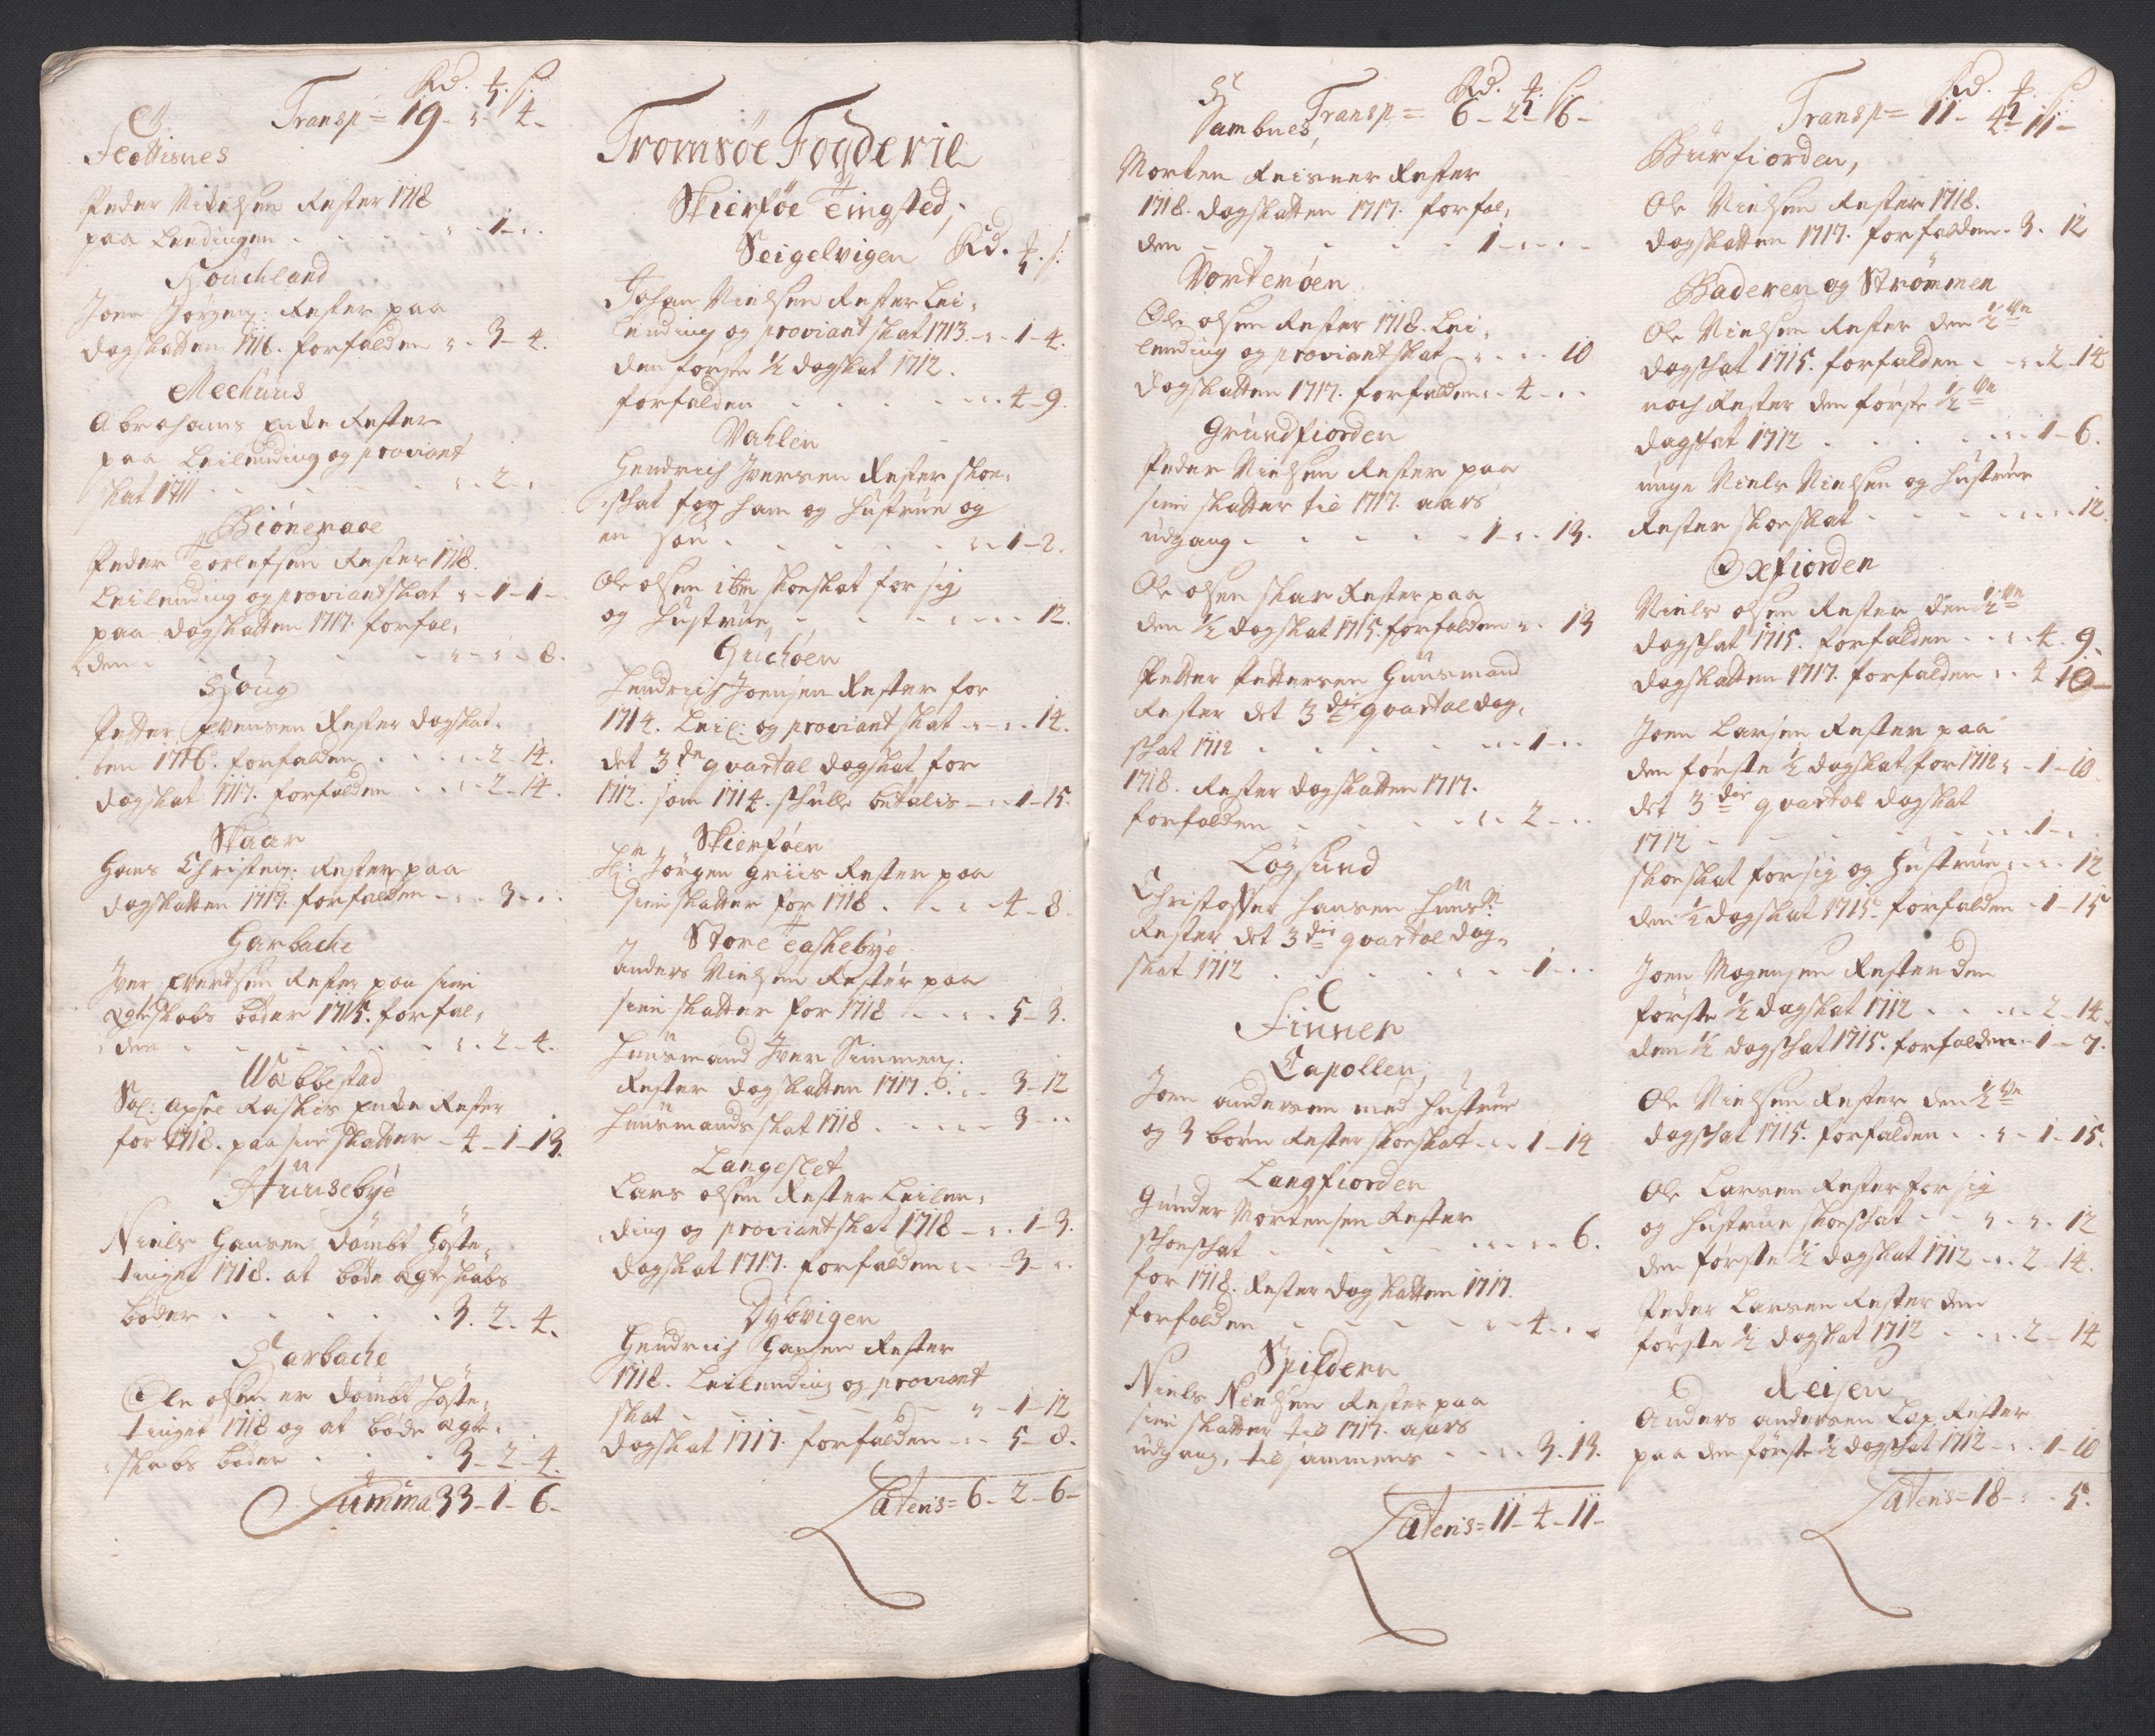 Rd. ȶ. ß
Transp = 19 - „ - 4 -
Flottisnes
Peder Nikelsen Rester 1718
paa Leedingen . . . „ - 1 - „
Houchland
Joen Jörgens: Rester paa
dagskatten 1716. forfalden „ - 3 - 4.
Meehuus
Abrahams Enke Rester
paa Leilending og proviant
skat 1711 . . . „ - 2 - „
Biöneraae
Peder Torlefsen Rester 1718.
Leilending og proviantskat „ - 1 - 1 -
paa dagskatten 1717. forfal„
„den . . . „ - „ - 8.
Houg
Petter Evensen Rester dagskat„
ten 1716. forfalden . . „ - 2 - 14.
dagskat 1717. forfalden . . „ - 2 - 14.
Skaar
Hans Christens: Rester paa
dagskatten 1717. forfalden - „ - 3 - „
Harbache
Iver Evertsen Rester paa sine
ægteskabs bøder 1715. forfal„
„den . . . „ - 2 - 4.
Wabbestad
Sal: Apsel Raskis Enke Rester
for 1718. paa sine skatter - 4 - 1 - 13.
Huusebye
Niels Hansen dömbt Höste„
tinget 1718. at bøde ægteskabs
bøder . . . 3. 2 - 4.
Harbache
Ole olsen er dömbt Höste„
tinget 1718 og at bøde ægte„
„skabs bøder . . . 3 - 2 - 4.
Summa 33 - 1 - 6 -
Tromsöe Fogderie
Skierföe Tingsted,
Seigelvigen Rd. ȶ. ß
Johan Nielsen Rester Lei„
lending og proviant skat 1713 - „ - 1 - 4.
den første ½ dagskat 1712.
forfalden . . . „ - 4 - 9.
Vahlen
Hendrich Iversen Rester skoe„
„skat for ham og Hustrue og
en sön . . . „ - 1 - 2.
Ole olsen ibm skoeskat for sig
og Hustrue . . . „ - „ - 12.
Hüchöen
Hendrich Joensen Rester for
1714. Leil: og proviant skat - „ - „ - 14.
det 3de qvartal dagskat for
1712. som 1714. skulle betalis - „ - 1 - 15.
Skierföen
Hr: Jörgen Griis Rester paa
sine skatter for 1718 . . „ - 4 - 8.
Store Taskebye
Anders Nielsen Rester paa
sine skatter for 1718 . . „ - 5 - 3.
Huusmand Iver Simmens:
Rester dagskatten 1717. „ - 3 - 12
Huusmands skat 1718 . . . „ - 3 - „
Langeslet
Lars olsen Rester Leilen„
„ding og proviantskat 1718 - „ - 1 - 3.
dagskat 1717. forfalden „ - 3 - „
Dybvigen
Hendrich Hansen Rester
1718. Leilending og proviant
skat . . . „ - 1 - 12
dagskat 1717. forfalden - „ - 5 - 8.
Lateris = 6 - 2 - 6 -
Rd. ȶ. ß
Transp = 6 - 2 - 6 -
Hambnes,
Morten Reisner Rester
1718. dagskatten 1717. forfal„
den . . . 1 - „ - „
Vorterøen
Ole olsen Rester 1718. Lei„
lending og proviantskat - „ - „ - 10
dagskatten 1717. forfalden „ - 4 - „
Grundfiorden
Peder Nielsen Rester paa
sine skatter til 1717. aars
udgang . . . 1 - „ - 13.
Ole olsen skar Rester paa
den ½ dagskat 1715. forfalden „ - „ 13
Petter Pettersen Huusmand
Rester det 3die qvartal dag„
skat 1712 . . . „ - 1 - „
1718. Rester dagskatten 1717.
forfalden . . . „ - 2 - „
Lögsund
Christopher Hansen Huusm:
Rester det 3die qvartal dag„
skat 1712 . . . „ - 1 - „
Finner
Capollen,
Joen andersen med Hustrue
og 3 børn Rester skoeskat „ - 1 - 14
Langfiorden
Gunder Mortensen Rester
skoeskat . . . „ - „ - 6.
for 1718. Rester dagskatten 1717.
forfalden . . . „ - 4 - „
Spildern
Niels Nielsen Rester paa
sine skatter til 1717. aars
udgang, til sammens . . „ - 3. 13.
Lateris = 11 - 4 - 11 -
Rd. ȶ. ß
Transp = 11 - 4 - 11 -
Burfiorden,
Ole Nielsen Rester 1718.
dagskatten 1717. forfalden - 3. 12
Baderen og Strömmen
Ole Nielsen Rester den ½ve
dagskat 1715. forfalden . - „ 2 - 14
noch Rester den første ½ve
dagskat 1712 . . . „ - 1 - 6.
unge Niels Nielsen og Hustrue
Rester skoeskat . . . „ - „ - 12.
Oxfiorden
Niels olsen Rester den ½ve
dagskat 1715. forfalden . . „ - 4. 9.
dagskatten 1717. forfalden „ - 4 10 -
Joen Larsen Rester paa
den første ½ dagskat for 1712 „ - 1 - 10.
det 3die qvartal dagskat
1712 . . . „ - 1 - „
skoeskat for sig og Hustrue „ - „ - 12
den ½ dagskat 1715. forfalden - 1 - 15
Joen Mogensen Rester den
første ½ dagskat 1712 . . „ - 2 - 14.
den ½ dagskat 1715. forfalden - 1 - 7.
Ole Nielsen Rester den ½ve
dagskat 1715. forfalden . . „ - 1 - 15.
Ole Larsen Rester for sig
og Hustrue skoeskat . - „ - „ - 12
den første ½ dagskat 1712 - „ - 2 - 14.
Peder Larsen Rester den
første ½ dagskat 1712 . . „ - 2 - 14
Reisen
Anders andersen Lap Rester
paa den første ½ dagskat 1712 - „ - 1 - 10
Lateris = 18 - „ - 5.